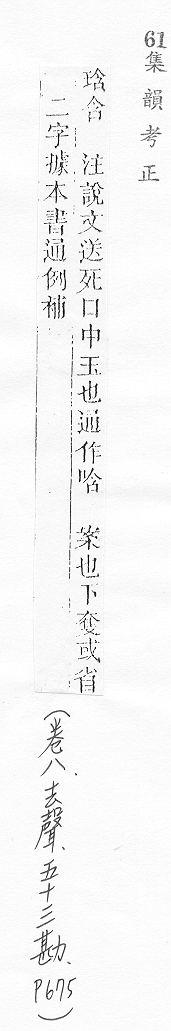 61集韻考正
琀含　注說文送死口中玉也通作唅　案也下奪或省
二字據本書通例補
(卷八、去聲、五十三勘、P675)